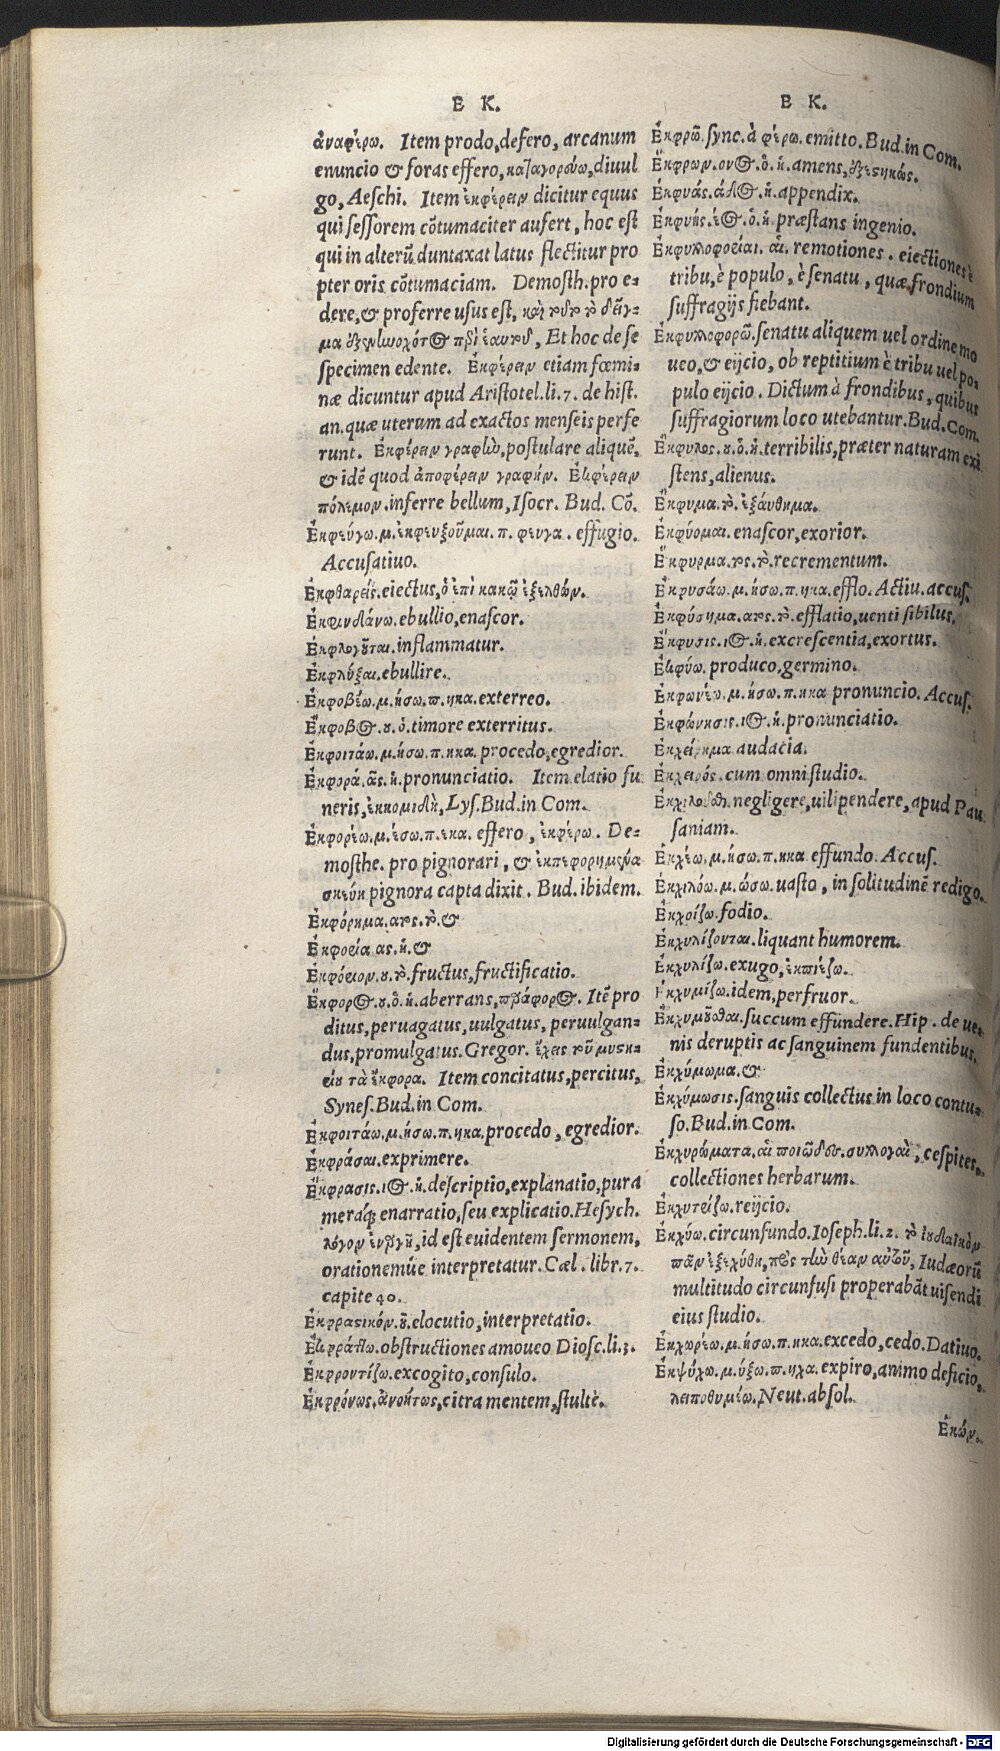 E K.
ἀναφέρω. Item prodo, defero, arcanum
enuncio & foras effero, καταγορεύω, diuul
go, Aeschi. Item ἐκφέρειν dicitur equus
qui sessorem cōtumaciter aufert, hoc est
qui in alterū duntaxat latus flectitur pro
pter oris cōtumaciam. Demosth. pro e-
dere, & proferre usus est, καὶ τοῦτο τὸ δεῖγ-
μα ἐξενηνοχότος περὶ ἑαυτοῦ, Et hoc de se
specimen edente. Ἐκφέρειν etiam fœmi-
næ dicuntur apud Aristotel. li. 7. de hist.
an. quæ uterum ad exactos menseis perfe
runt. Ἐκφέρειν γραφὴν, postulare aliquē.
& idē quod ἀποφέρειν γραφήν. Ἐκφέρειν
πόλεμον. inferre bellum, Isocr. Bud. Cō.
Ἐκφεύγω. μ. ἐκφευξοῦμαι. π. φευγα. effugio.
Accusatiuo.
Ἐκφθαρείς. eiectus, ὁ ἐπὶ κακῷ ἐξελθών.
Ἐκφινδάνω. ebullio, enascor.
Ἐκφλογοῦται. inflammatur.
Ἐκφλύξαι. ebullire.
Ἐκφοβέω. μ. ήσω. π. ηκα. exterreo.
Ἔκφοβος. ου. ὁ. timore exterritus.
Ἐκφοιτάω. μ. ήσω. π. ηκα. procedo, egredior.
Ἐκφορά. ᾶς. ἡ. pronunciatio. Item elatio fu
neris, ἐκκομιδὴ, Lys. Bud. in Com.
Ἐκφορέω. μ. έσω. π. εκα. effero, ἐκφέρω. De-
mosthe. pro pignorari, & ἐκπεφορημένα
σκεύη pignora capta dixit. Bud. ibidem.
Ἐκφόρημα. ατος. τὸ. &
Ἐκφορία ας. ἡ. &
Ἐκφόριον. ου. τὸ. fructus, fructificatio.
Ἔκφορος. ου. ὁ. ἡ. aberrans, παράφορος. Itē pro
ditus, peruagatus, uulgatus, peruulgan-
dus, promulgatus. Gregor. ἔχεις τοῦ μυστη-
ρίου τὰ ἔκφορα. Item concitatus, percitus,
Synes. Bud. in Com.
Ἐκφοιτάω. μ. ήσω. π. ηκα. procedo, egredior.
Ἐκφράσαι. exprimere.
Ἔκφρασις. ιος. ἡ. descriptio, explanatio, pura
meraq́; enarratio, seu explicatio. Hesych.
λόγον ἐναργῆ, id est euidentem sermonem,
orationemúe interpretatur. Cæl. libr. 7.
capite 40.
Ἐκφραστικόν. οῦ. elocutio, interpretatio.
Ἐκφράττω. obstructiones amoueo Diosc. li. 3.
Ἐκφροντίζω. excogito, consulo.
Ἐκφρόνως. ἀνοήτως, citra mentem, stultè.
E K.
Ἐκφρῶ. sync. à φέρω. emitto. Bud. in Com.
Ἔκφρων. ονος. ὁ. ἡ. amens, ἐξεστηκώς.
Ἐκφυάς. άδος. ἡ. appendix.
Ἐκφυής. έος. ὁ. ἡ. præstans ingenio.
Ἐκφυλλοφορίαι. αἱ. remotiones. eiectiones è
tribu, è populo, è senatu, quæ frondium
suffragijs fiebant.
Ἐκφυλλοφορῶ. senatu aliquem uel ordine mo
ueo, & eijcio, ob reptitium è tribu uel po-
pulo eijcio. Dictum à frondibus, quibus
suffragiorum loco utebantur. Bud. Com.
Ἔκφυλος. ου. ὁ. ἡ. terribilis, præter naturam exi
stens, alienus.
Ἔκφυμα. τὸ. ἐξάνθημα.
Ἐκφύομαι. enascor, exorior.
Ἔκφυρμα. τος. τὸ. recrementum.
Ἐκφυσάω. μ. ήσω. π. ηκα. efflo. Actiu. accus.
Ἐκφύσημα. ατος. τὸ. efflatio, uenti sibilus.
Ἔκφυσις. ιος. ἡ. excrescentia, exortus.
Ἐκφύω. produco, germino.
Ἐκφωνέω. μ. ήσω. π. ηκα pronuncio. Accus.
Ἐκφώνησις. ιος. ἡ. pronunciatio.
Ἐκχείρημα audacia.
Ἐκχειρός. cum omni studio.
negligere, uilipendere, apud Pau
saniam.
Ἐκχέω. μ. ήσω. π. ηκα effundo. Accus.
Ἐκχιλόω. μ. ώσω. uasto, in solitudinē redigo.
Ἐκχοίζω. fodio.
Ἐκχυλίζονται. liquant humorem.
Ἐκχυλίζω. exugo, ἐκπιέζω.
Ἐκχυμίζω. idem, perfruor.
Ἐκχυμοῦσθαι. succum effundere. Hip. de ue-
nis deruptis ac sanguinem fundentibus.
Ἐκχύμωμα. &
Ἐκχύμωσις. sanguis collectus in loco contu-
so. Bud. in Com.
Ἐκχυρώματα. αἱ ποιώδεις. συλλογαὶ, cespites,
collectiones herbarum.
Ἐκχυτείζω. reijcio.
Ἐκχύω. circunfundo. Ioseph. li. 2. τὸ ἰουδαικὸν
πᾶν ἐξεχύθη, πρὸς τὴν θέαν αὐτοῦ, Iudæorū
multitudo circunfusi properabāt uisendi
eius studio.
Ἐκχωρέω. μ. ήσω. π. ηκα. excedo, cedo. Datiuo.
Ἐκψύχω. μ. ύξω. π. ηχα. expiro, animo deficio,
λειποθυμέω. Neut. absol.
Ἑκών.
Digitalisierung gefördert durch die Deutsche Forschungsgemeinschaft - DFG